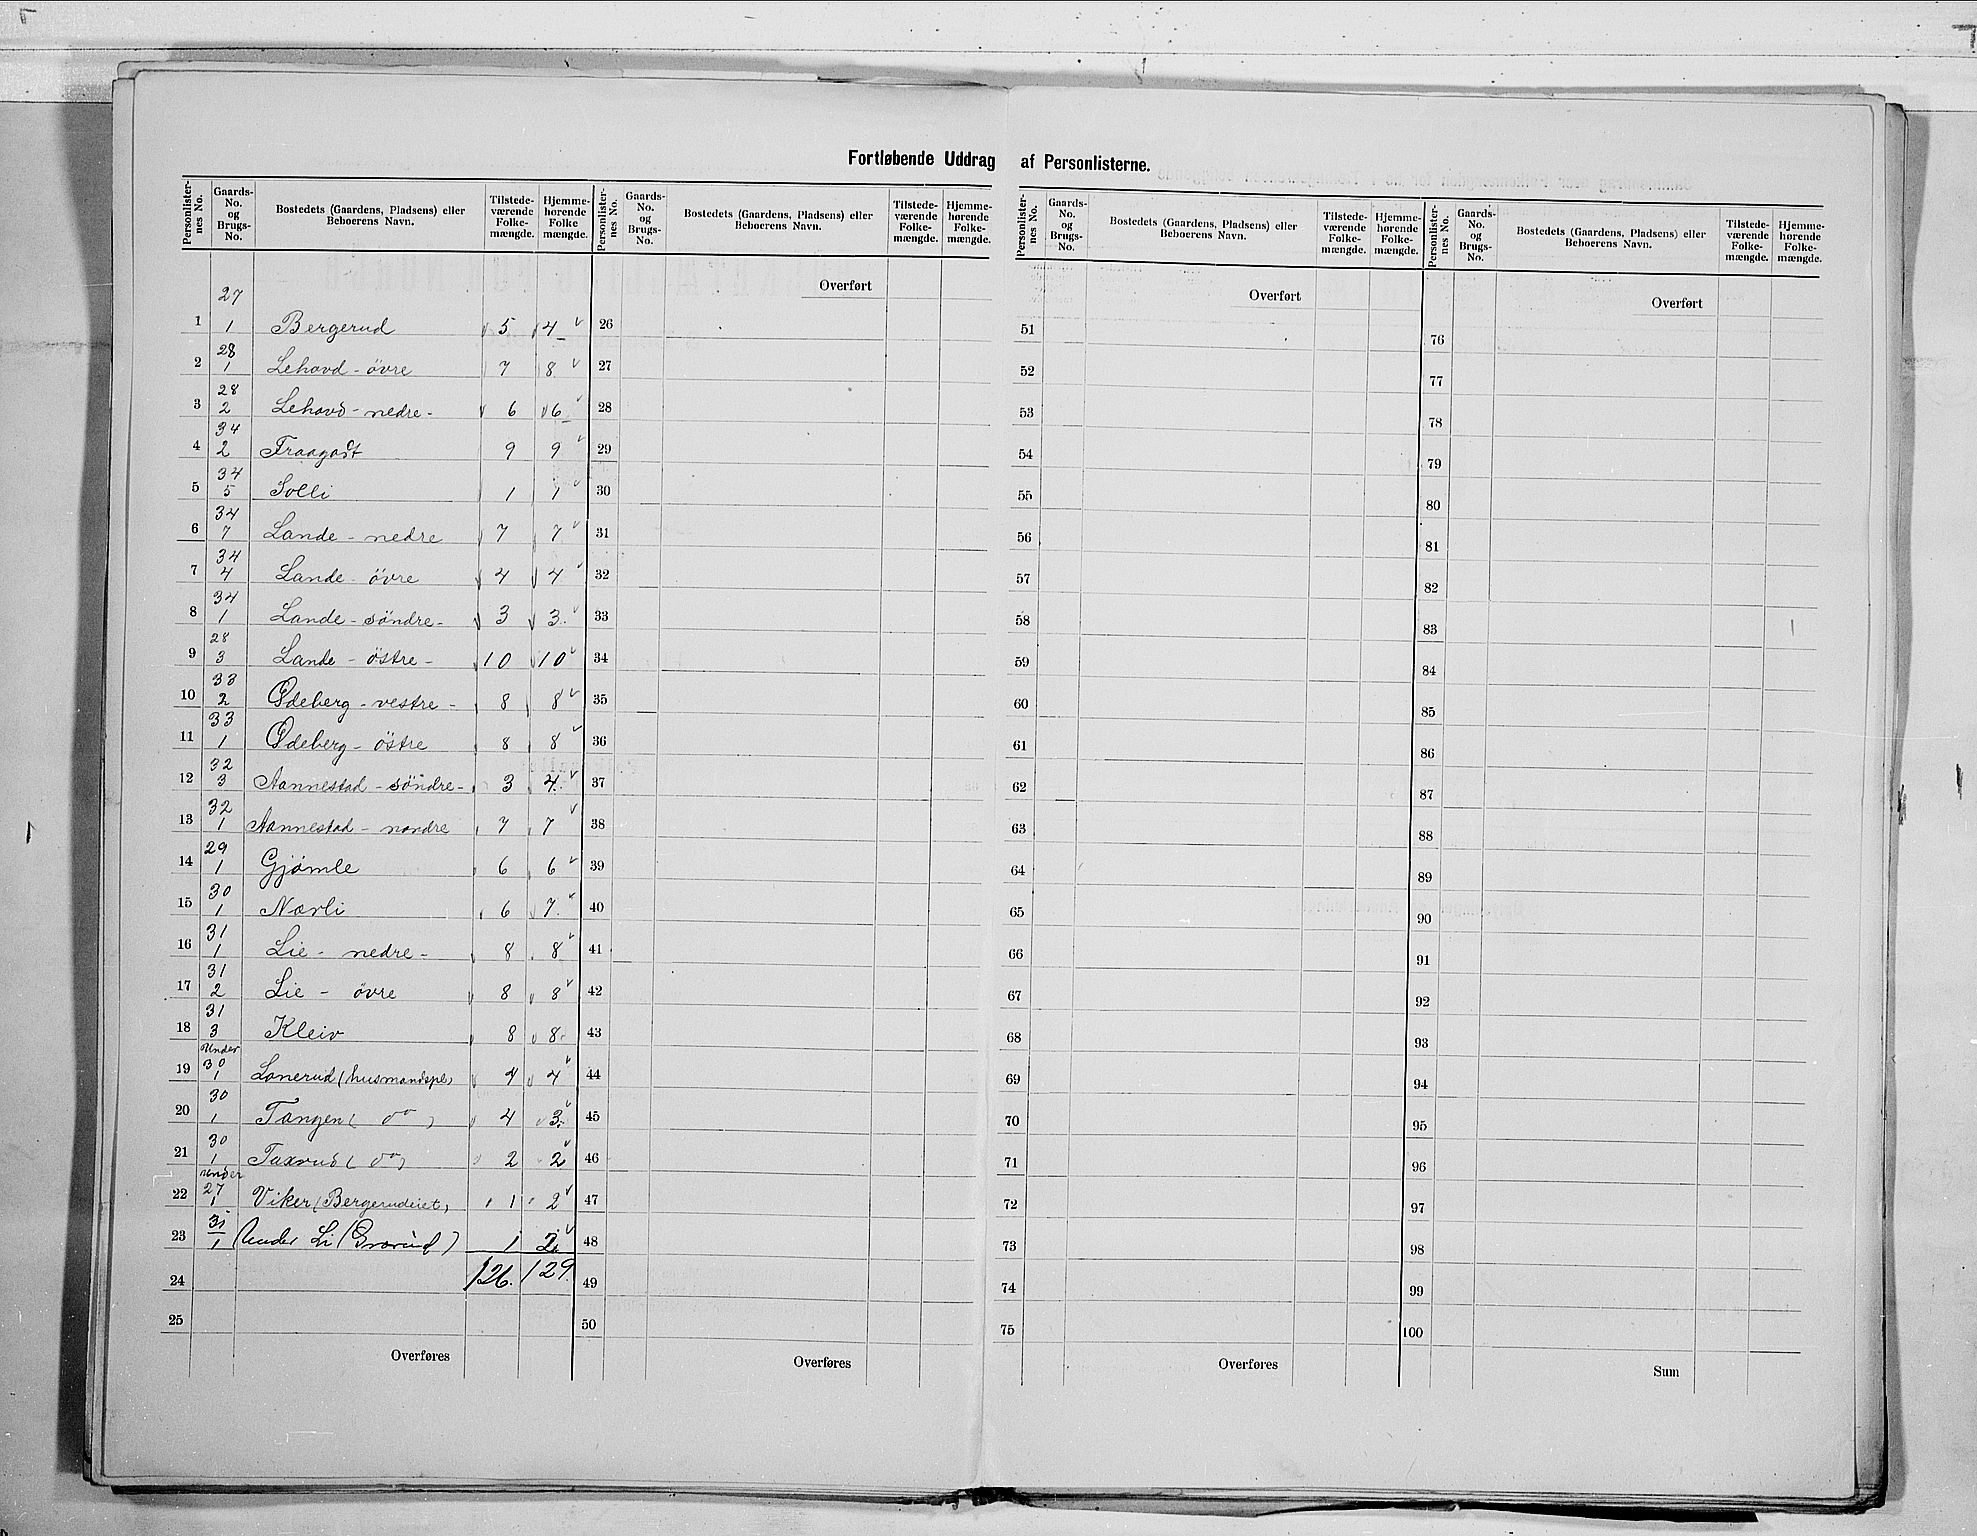 Fortløbende Uddrag af Personlisterne.
Personlister-nes No. | Gaards-No. og Brugs-No. | Bostedets (Gaardens, Pladsens) eller Beboerens Navn. | Tilstede-værende Folke-mængde. | Hjemme-hørende Folke mængde.
Personlister-nes No. | Gaards-No. og Brugs-No. | Bostedets (Gaardens, Pladsens) eller Beboerens Navn. | Tilstede-værende Folke-mængde. | Hjemme-hørende Folke-mængde.
Personlister-nes No. | Gaards-No. og Brugs-No. | Bostedets (Gaardens, Pladsens) eller Beboerens Navn. | Tilstede-værende Folke-mængde. | Hjemme-hørende Folke-mængde.
Personlister-nes No. | Gaards-No. og Brugs-No. | Bostedets (Gaardens, Pladsens) eller Beboerens Navn. | Tilstede-værende Folke-mængde. | Hjemme-hørende Folke-mængde.
1 27/1 Bergerud 5 4
2 28/1 Lehovd - övre 7 8
3 28/2 Lehovd - nedre - 6 6
4 34/2 9 9
5 34/5 Solli 1 1
6 34/7 Lande - nedre 7 7
7 34/4 Lande - övre 4 4
8 34/1 Lande - söndre - 3 3
9 28/3 Lande - östre - 10 10
10 33/2 Ødeberg - vestre - 8 8
11 33/1 Ødeberg - östre 8 8
12 32/3 Aannestad - söndre - 3 4
13 32/1 Aannestad - nordre 7 7
14 29/1 Gjömle 6 6
15 30/1 Nærli 6 7
16 31/1 Lie - nedre - 8 8
17 31/2 Lie - övre 8 8
18 31/3 Kleiv 8 8
19 Under 30/1 Lonerud (husmandspl) 4 4
20 30/1 Tangen ( do ) 4 3
21 30/1 Taxrud ( do ) 2 2
22 Under 27/1 Viker (Bergerudeiet) 1 2
23 31/1 (Under Li (Grorud) 1 2
24 126. 129.
25
Overføres
Overført
26
27
28
29
30
31
32
33
34
35
36
37
38
39
40
41
42
43
44
45
46
47
48
49
50
Overføres
Overført
51
52
53
54
55
56
57
58
59
60
61
62
63
64
65
66
67
68
69
70
71
72
73
74
75
Overføres
Overført
76
77
78
79
80
81
82
83
84
85
86
87
88
89
90
91
92
93
94
95
96
97
98
99
100
Sum